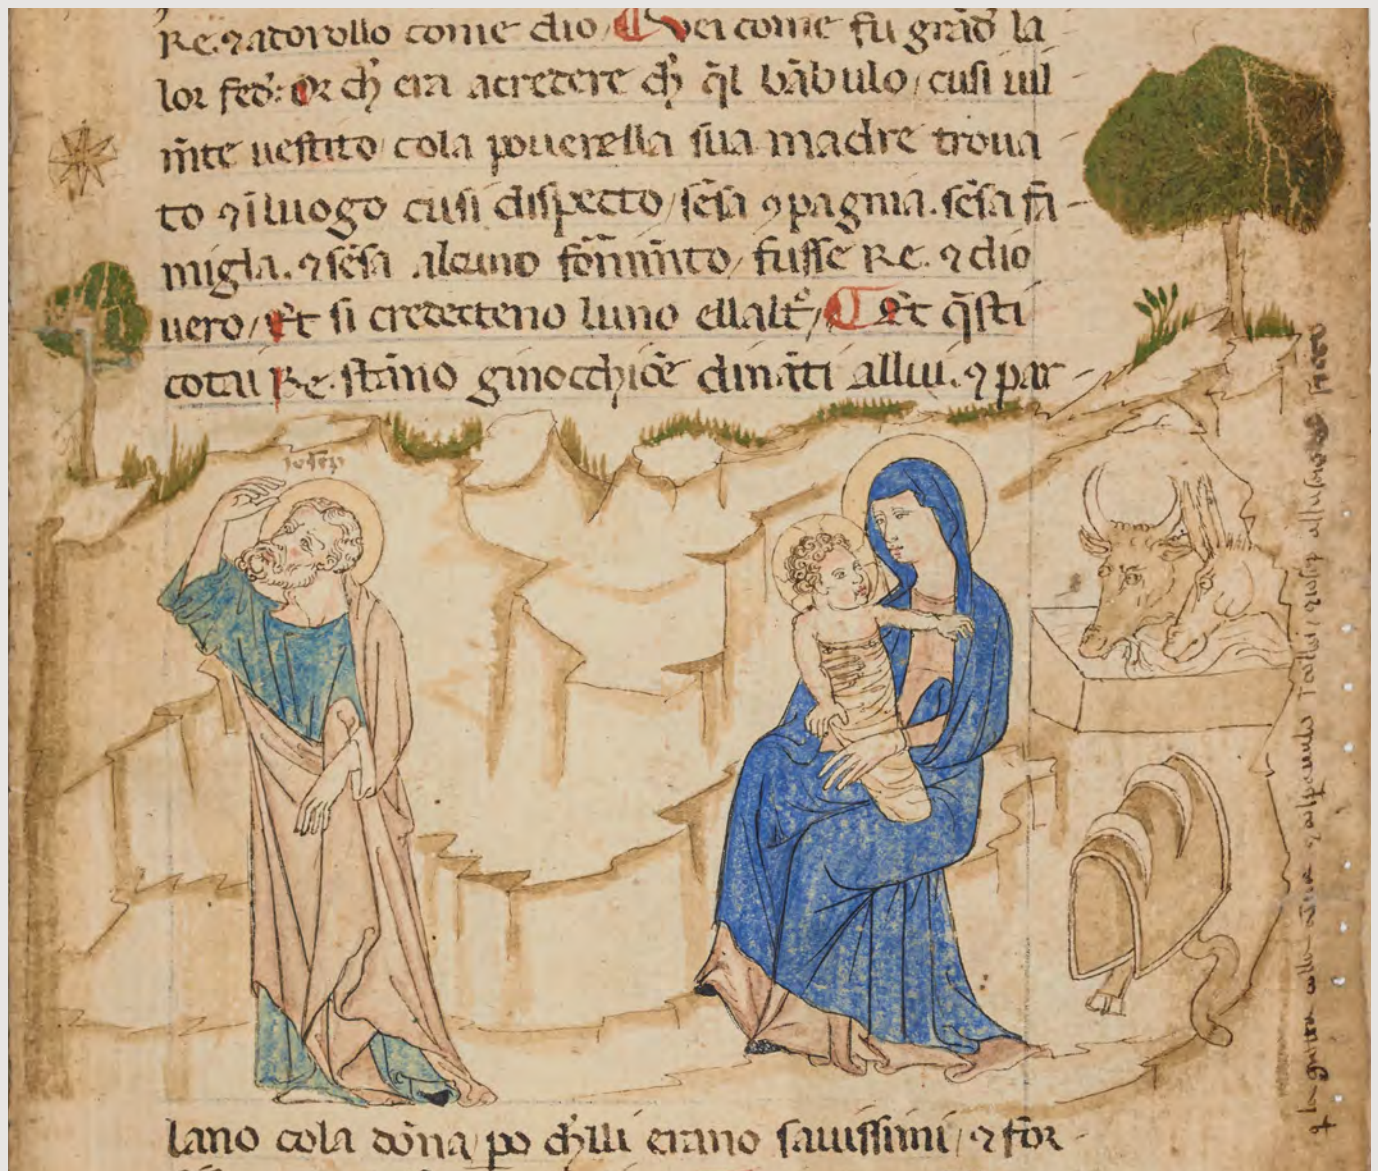 Re. ⁊ adorollo come dio. Vei come fu grād̄ la
lor fed̄: Or ch̄ era a credere ch̄ q̄l bābulo / cusi uil
m̄te uestito cola pouerella sua madre troua
to ⁊ ī luogo cusi dispecto / sēsa ꝯpagnia. sēsa fa
miglia. ⁊ sēsa alcuno forním̄to / fusse Re. ⁊ dio
uero / Et si credetteno luno ellalt̊ / Et q̄sti
cotai Re. stāno ginocchiōe dināti allui. ⁊ par
lano cola dōna / po ch̄lli erano sauissimi / ⁊ for